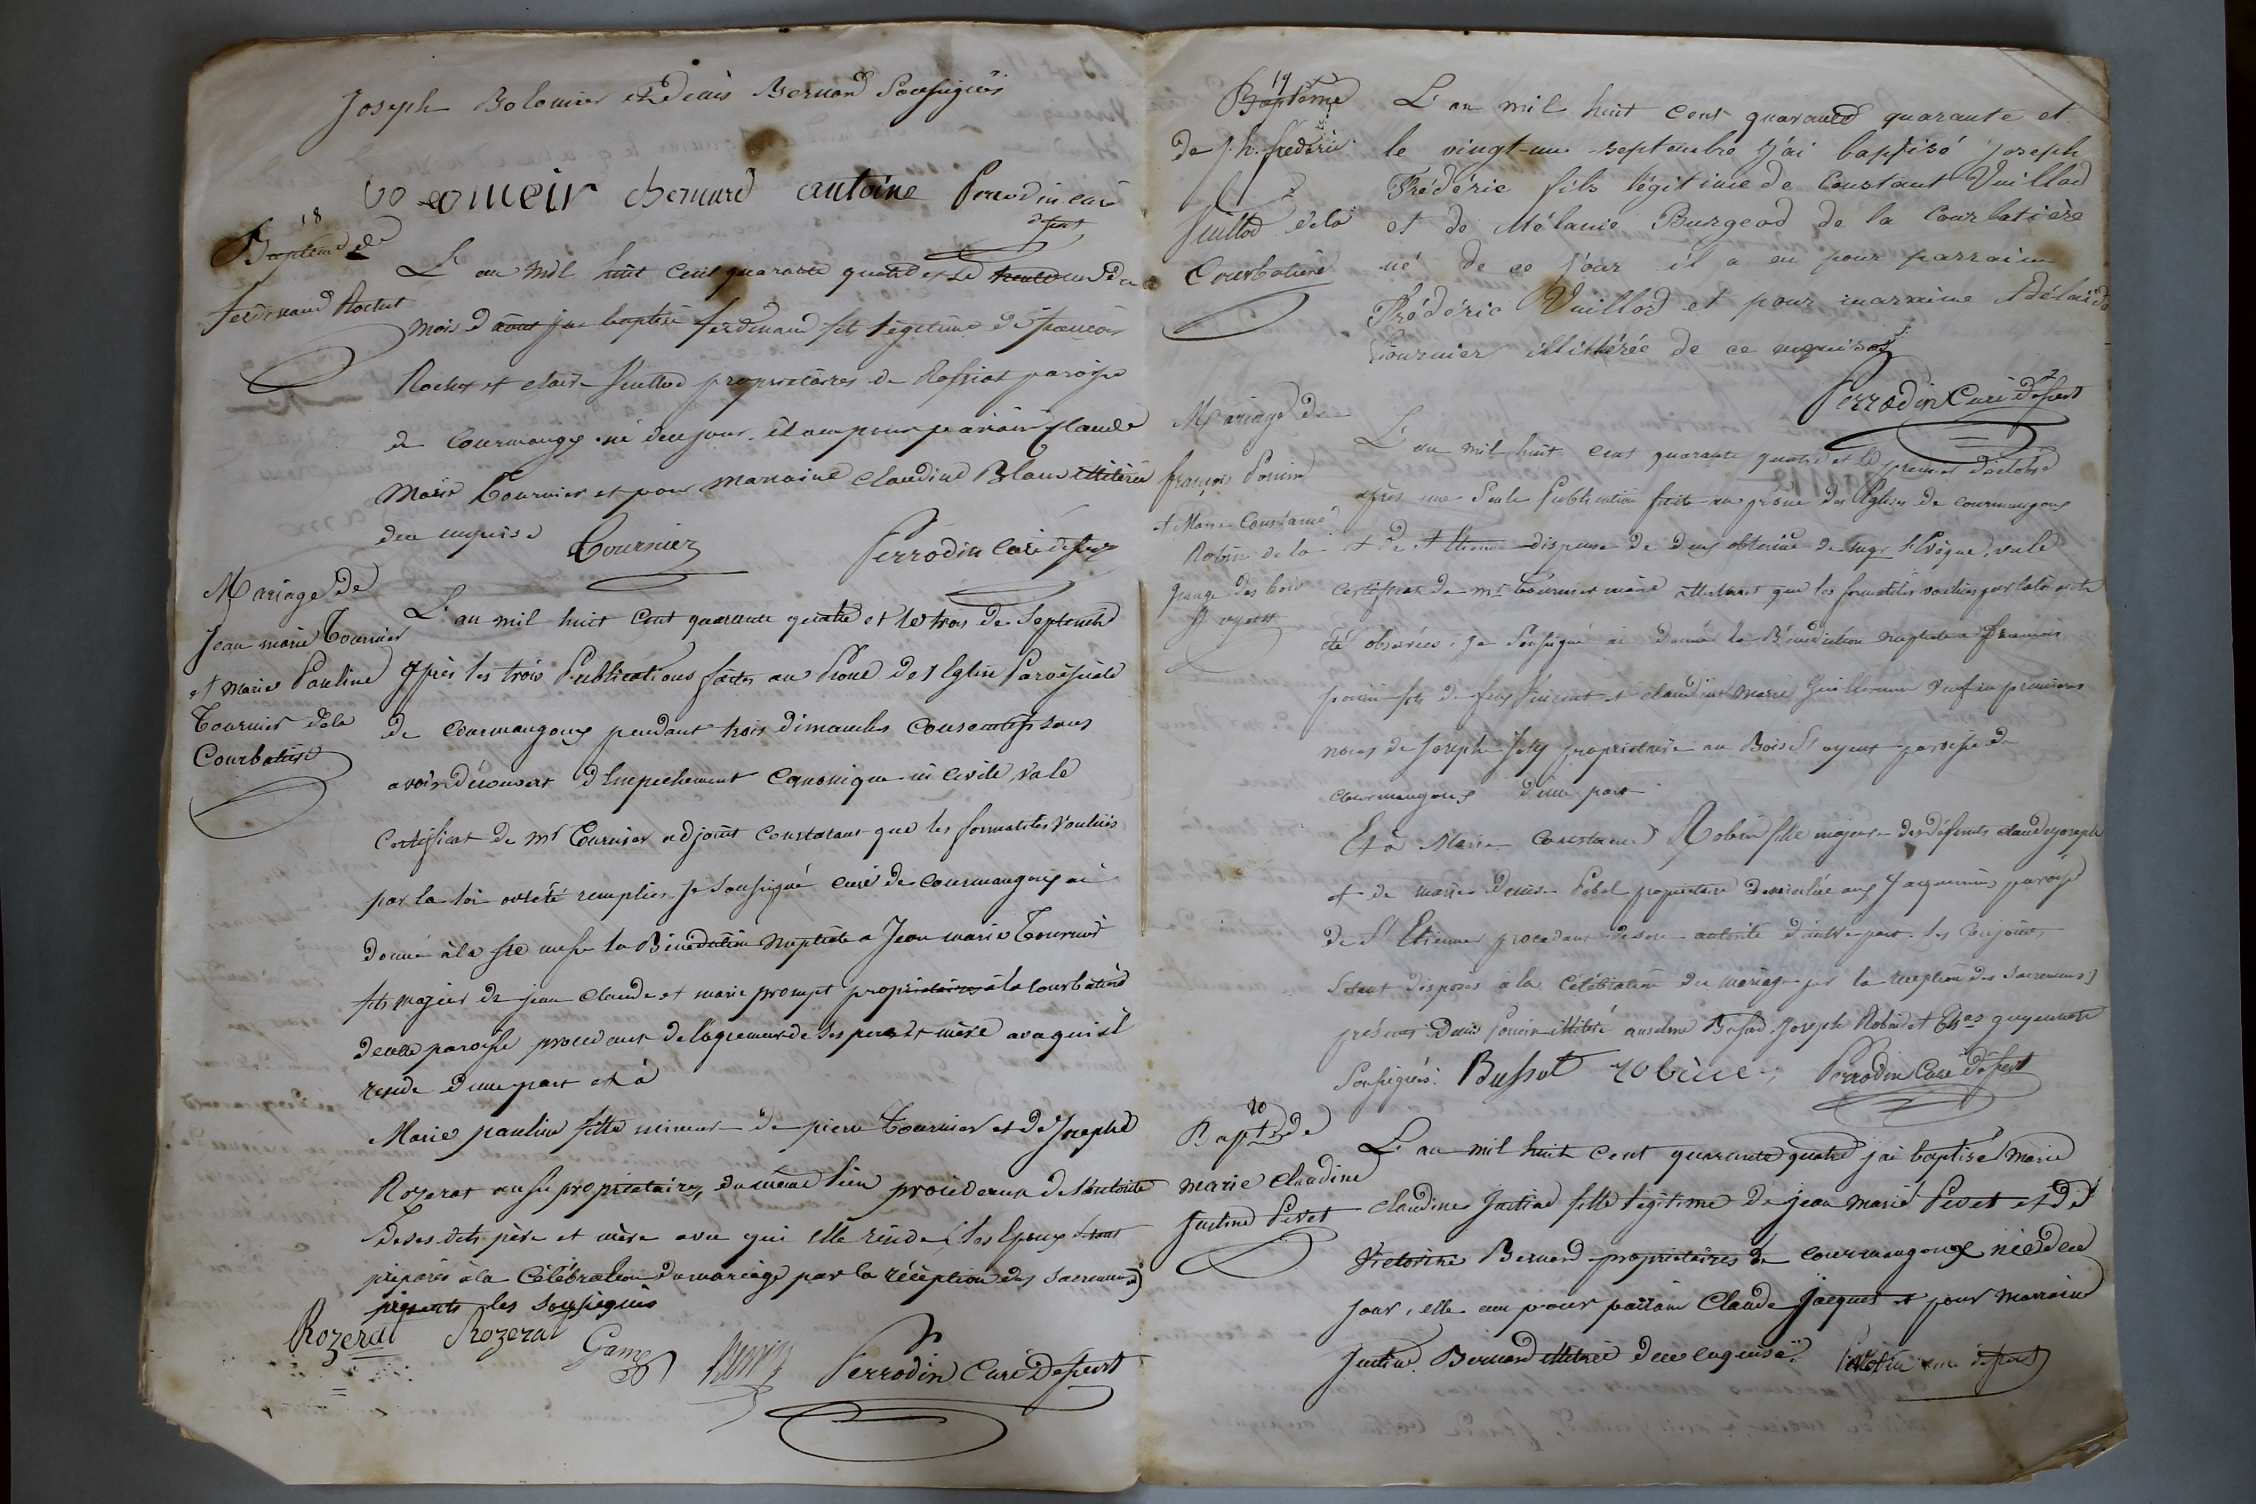 Joseph Bolomier et Denis Bernard Soussignés
bernard antoine Perrodin curé
18
Baptême de
ferdinand Rochet
L'an mil huit cent quarante quatre et le du
mois d'aout j'ai baptisé ferdinand fils légitime de françois
Rochet et claire propriétaires de paroisse
de Courmangoux né du jour. il a eu pour parain Claude
Marie Tournier et pour marraine claudine Blanc illitérée
de ce enquise
Tournier Perrodin Curé desst
Mariage de
Jean marie Tournier
et marie Pauline
Tournier de la
Courbatiere
L'an mil huit cent quarante quatre et le trois de Septembre
après les trois Publications faites au Prone de l'Eglise Paroissiale
de Courmangoux pendant trois dimanches consecutifs sans
avoir découvert d'Empêchement Canonique ni civile, vu le
Certificat de Mr Tournier adjoint constatant que les formalités voulues
par la loi ont été remplies, je soussigné curé de Courmangoux ai
donné à la ste messe la Bénédiction nuptiale a Jean marie Tournier
fils majeur de jean claude et marie prompt propriétaires à la Courbatière
de cette paroisse procedant de l'agrement de ses pere et mère avec qui il
reside d'une part et à
Marie pauline fille mineure de pierre Tournier et de Josephe
Rozerat aussi propriétaires, du même lieu procédant de l'autorité
de ses dits père et mère avec qui elle réside (les Epoux s'étant
préparés à la Célébration du mariage par la réception des sacremens)
présents les soussignés
Rozerat Rozerat Perrodin Curé Dessert
19
Baptême
de j.h. frédéric
Vuillod de la
Courbatiere
L'an mil huit cent quarante quarante et
le vingt-un septembre j'ai baptisé joseph
Frédéric fils légitime de Constant Vuillod
et de Mélanie Burgeod de la Courbatière
né de ce jour il a eu pour parrain
Frédéric Vuillod et pour marraine Adélaide
Tournier illitérée de ce enquise
Perrodin Curé Dessert
Mariage de
françois Poncin
et Marie Constance
Robin de la
grange des bois
L'an mil huit cent quarante quatre et le premier d'octobre
après une Seule Publication faite au prone des Eglises de courmangoux
et de St Etienne dispense de deux obtenue de mgr l'Evêque, vu le
certificat de mr Tournier maire attestant que les formalités voulues par la loi ont
été observées, je soussigné ai donné la Bénédiction nuptiale a françois
poncin fils de feu Vincent et claudine marie Guillermin veuf en premieres
noces de Joseph Joly propriétaire au Bois St oyent paroisse de
Courmangoux d'une part
Et à Marie Constance Robin fille majeure des défunts claude joseph
et de marie Denise Pobel propriétaire domiciliée aux Jacquemins paroisse
de St Etienne procédant de son autorité d'autre part. les Conjoints
s'étant disposés à la Célébration du mariage par la reception des Sacremens
présents Denis Poncin illitéré anselme Bussod Joseph Robin et
Soussignés. Bussod robin Perrodin Curé Dessert
20
Bapt. de
marie claudine
Justine Pivet
L'an mil huit cent quarante quatre j'ai baptisé Marie
claudine Justine fille légitime de jean marie Pivet et de
Victorine Bernard propriétaires de courmangoux née de ce
jour, elle a eu pour parrain Claude Jacques et pour marraine
Justine Bernard illitérée de ce enquise. Perrodin curé dessert